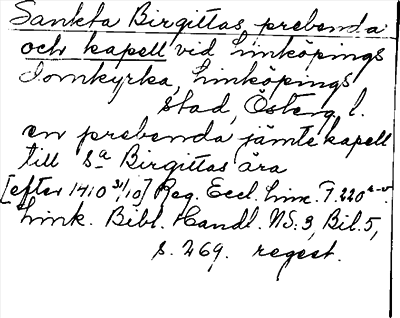 Sankta Birgittas prebenda
och kapell vid Linköpings
Domkyrka, Linköpings
stad, Österg. l.
en prebenda jämte kapell
till Sa Birgittas ära
[efter 1410 31/10] Reg. Eccl. Linc. F. 220 a-v.
Link. Bibl. Handl. NS: 3, Bil. 5,
s. 269, regest.